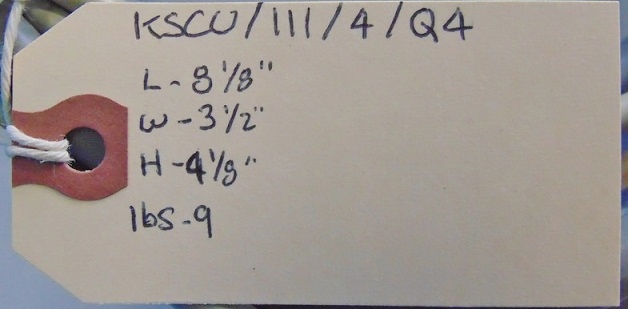 KSCU/111/4/Q4
L-8 1/8"
W-3 1/2"
H-4 1/8"
lbs-9